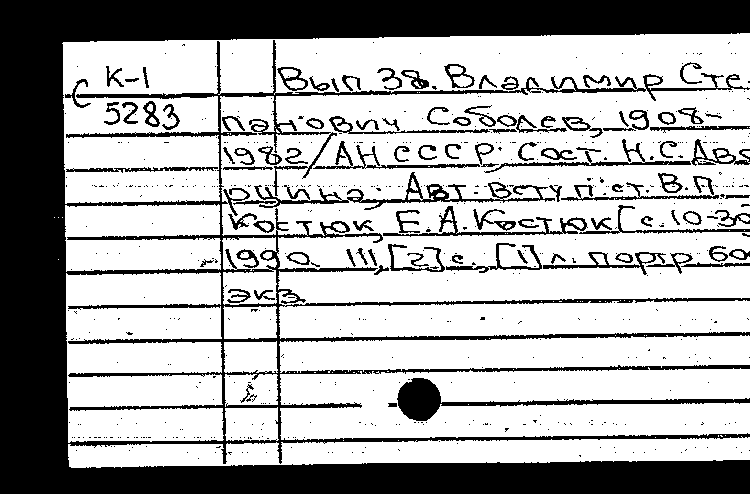 С К-1
5283
Вып 38. Владимир Сте-
панович Соболев, 1908-
1982/АН СССР; Сост. Н.С.Авд
ршина; Авт. вступ. ст. В.П
Костюк, Е.А.Костюк [с.10-30
1990. 111,[2]с., [1]л. портр. 60
экз.